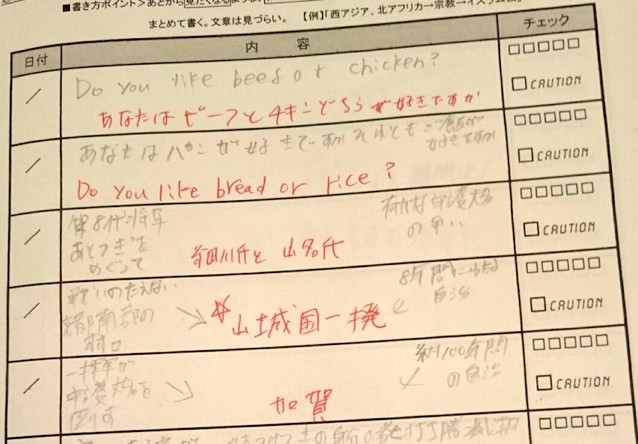 ■書き方ポイント＞あとから見たくなる
まとめて書く。文章は見づらい。 【例】「西アジア、北アフリカ→宗教→イスラム教」
日付 内 容 チェック
/ Do you like beef or chicken?
あなたはビーフとチキンどちらが好きですか
□□□□□
□ CAUTION
/ あなたはパンが好きですかそれともご飯が
好きですか
Do you like bread or rice?
□□□□□
□ CAUTION
/ 第8代将軍
あとつぎを
めぐって
有力な守護大名
の争い
細川氏と山名氏
□□□□□
□ CAUTION
/ 戦いのたえない
京都南部の
8年間にわたる
自治
山城国一揆
□□□□□
□ CAUTION
/ 一揆が
守護大名を
倒す
約100年間
の自治
加賀
□□□□□
□ CAUTION
□□□□□